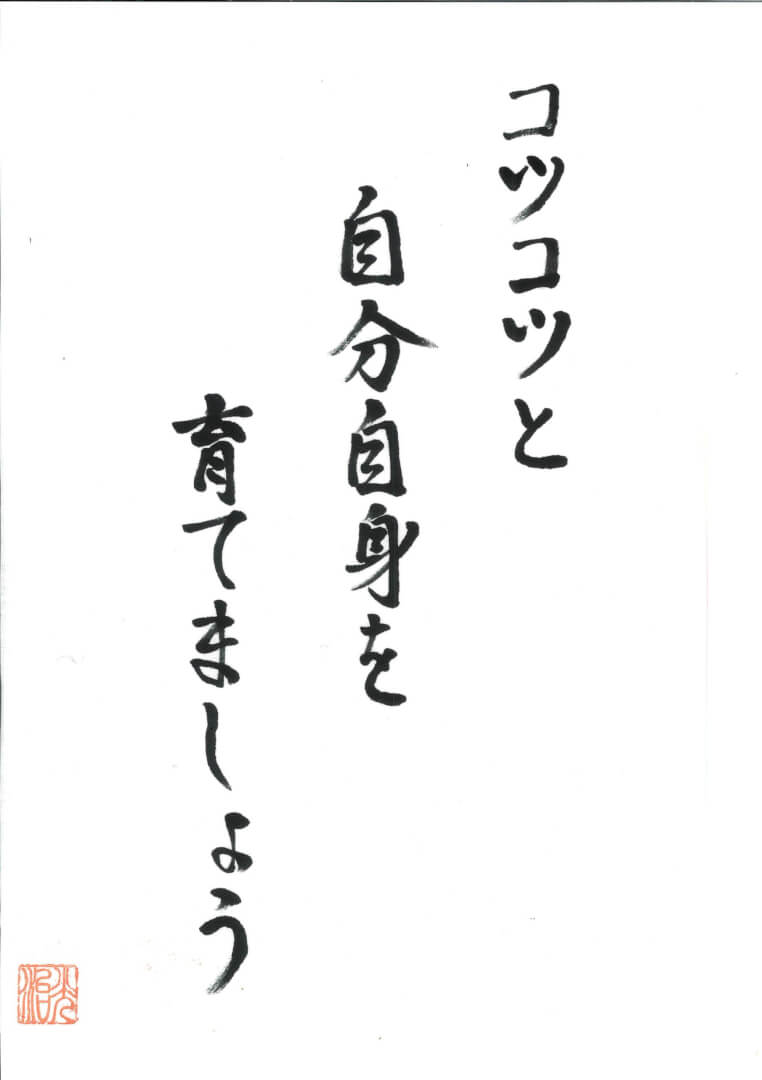 コツコツと
自分自身を
育てましょう